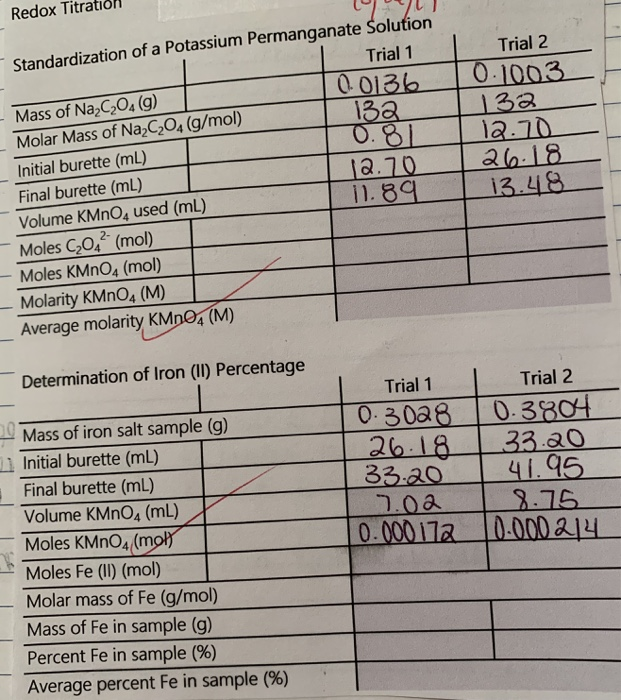 Redox Titration
Standardization of a Potassium Permanganate Solution
Trial 1 Trial 2
Mass of Na₂C₂O₄ (g) 0.0136 0.1003
Molar Mass of Na₂C₂O₄ (g/mol) 132 132
Initial burette (mL) 0.81 12.70
Final burette (mL) 12.70 26.18
Volume KMnO₄ used (mL) 11.89 13.48
Moles C₂O₄²⁻ (mol)
Moles KMnO₄ (mol)
Molarity KMnO₄ (M)
Average molarity KMnO₄ (M)
Determination of Iron (II) Percentage
Trial 1 Trial 2
Mass of iron salt sample (g) 0.3028 0.3804
Initial burette (mL) 26.18 33.20
Final burette (mL) 33.20 41.95
Volume KMnO₄ (mL) 7.02 8.75
Moles KMnO₄ (mol) 0.000172 0.000214
Moles Fe (II) (mol)
Molar mass of Fe (g/mol)
Mass of Fe in sample (g)
Percent Fe in sample (%)
Average percent Fe in sample (%)